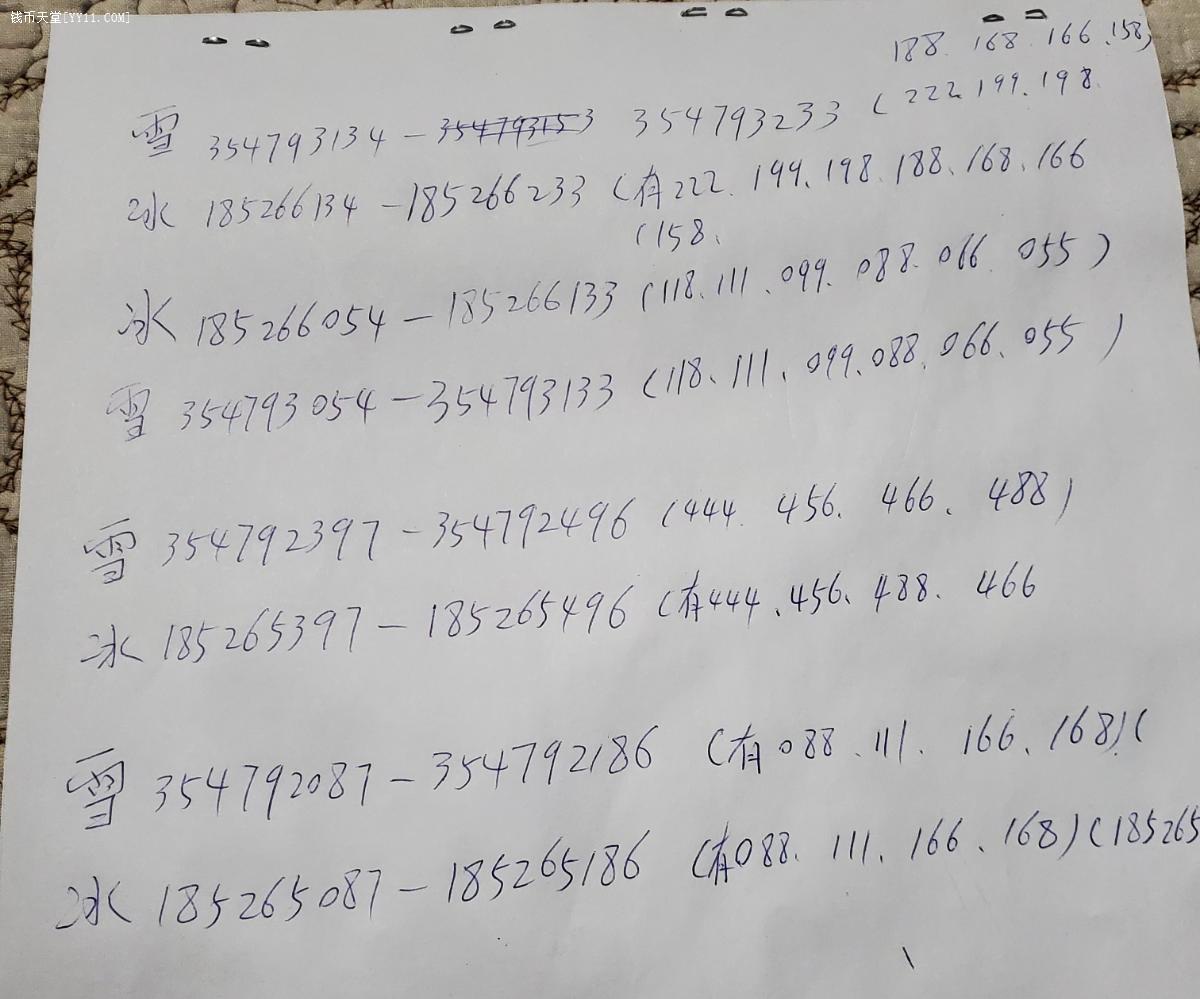 钱币天堂[YY11.COM]
188. 168. 166、158,
雪 354793134 — 354793153 354793233 ( 222 199. 198.
冰 185266134 — 185266233 (有222. 199、198. 188、168、166
(158、
冰 185266054 — 185266133 (118. 111、099. 088. 066. 055)
雪 354793054 — 354793133 (118、111、099. 088. 066、055)
雪 354792397 — 354792496 (444. 456. 466、488)
冰 185265397 — 185265496 (有444、456、488. 466
雪 354792087 — 354792186 (有088. 111. 166、168)(
冰 185265087 — 185265186 (有088. 111、166、168)(185265